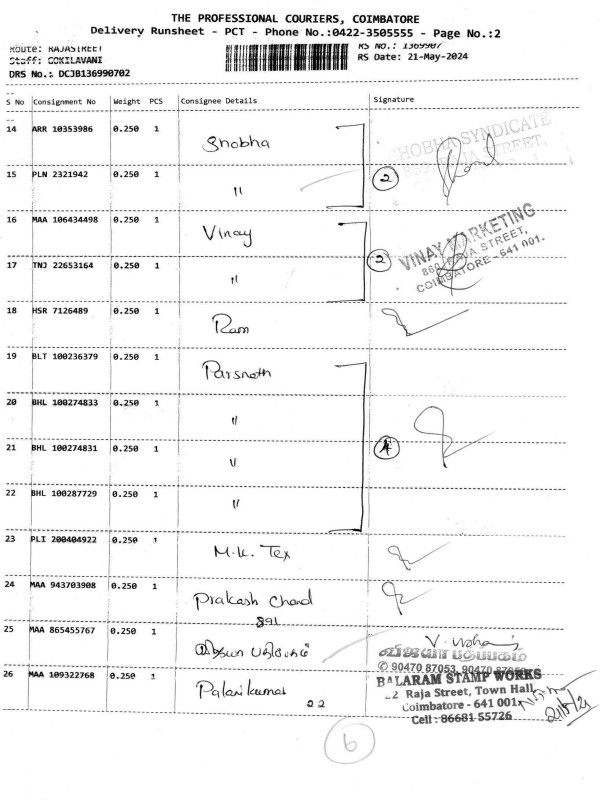 THE PROFESSIONAL COURIERS, COIMBATORE
Delivery Runsheet - PCT - Phone No.:0422-3505555 - Page No.:2
Route: RAJASTREET
RS No.: 1369907
Staff: GOKILAVANI
RS Date: 21-May-2024
DRS No.: DCJB136990702
S No Consignment No Weight PCS Consignee Details Signature
14 ARR 10353986 0.250 1 Shobha
SHOBHA SYNDICATE
RAJA STREET,
15 PLN 2321942 0.250 1 " 2
16 MAA 106434498 0.250 1 Vinay
VINAY MARKETING
860, RAJA STREET,
COIMBATORE - 641 001.
17 TNJ 22653164 0.250 1 " 2
18 HSR 7126489 0.250 1 Ram
19 BLT 100236379 0.250 1 Parsnath
20 BHL 100274833 0.250 1 "
21 BHL 100274831 0.250 1 " 4
22 BHL 100287729 0.250 1 "
23 PLI 200404922 0.250 1 M.K. Tex
24 MAA 943703908 0.250 1 Prakash Chand
891
25 MAA 865455767 0.250 1 விஜயா பதிப்பகம்
விஜயா பதிப்பகம்
✆ 90470 87053, 90470 87058
26 MAA 109322768 0.250 1 Palanikumar
22
BALARAM STAMP WORKS
22 Raja Street, Town Hall,
Coimbatore - 641 001.
Cell : 86681 55726
6